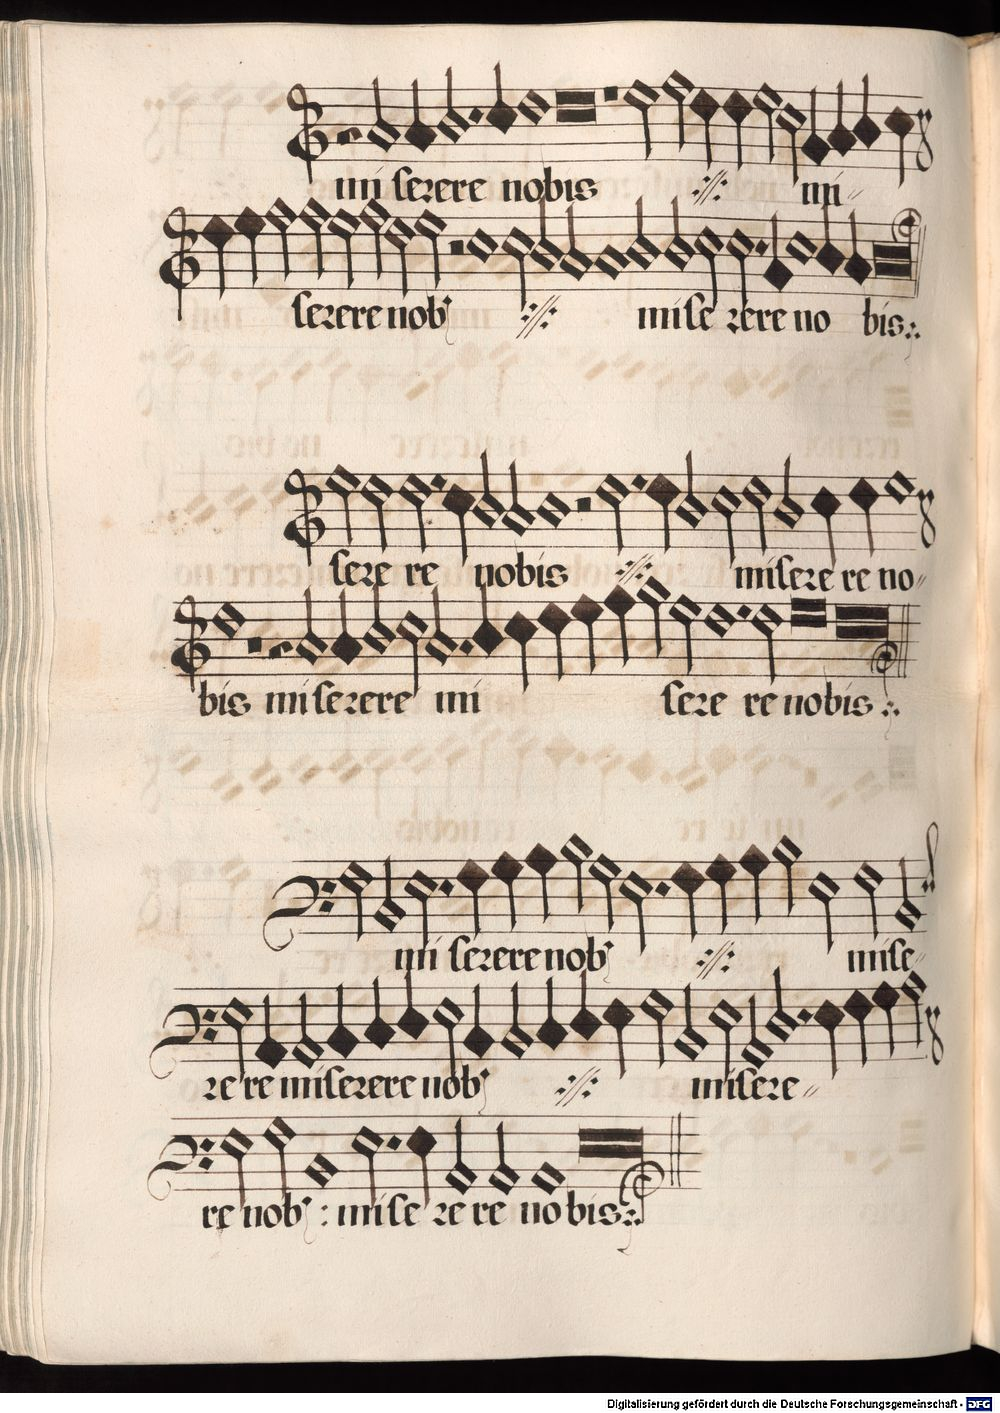 mi serere nobis ·//· mi-
serere nob ·//· mi se rere no bis:.
sere re nobis ·//· mi sere re no-
bis mi serere mi sere re nobis:.
mi serere nob ·//· mi se-
re re mi serere nob ·//· mi sere-
re nob : mi se re re no bis:.
Digitalisierung gefördert durch die Deutsche Forschungsgemeinschaft - DFG